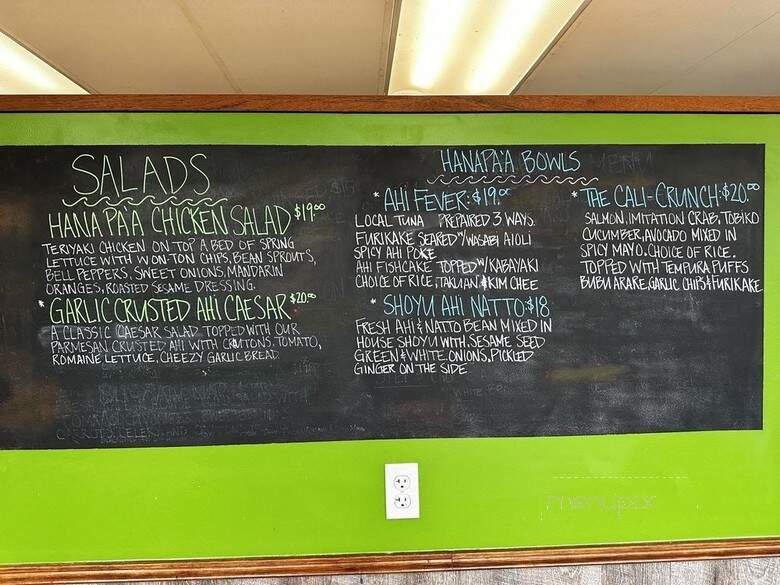 SALADS
HANA PA'A CHICKEN SALAD $19.00
TERIYAKI CHICKEN ON TOP A BED OF SPRING
LETTUCE WITH WON-TON CHIPS, BEAN SPROUTS,
BELL PEPPERS, SWEET ONIONS, MANDARIN
ORANGES, ROASTED SESAME DRESSING.
* GARLIC CRUSTED AHI CAESAR $20.00
A CLASSIC CAESAR SALAD TOPPED WITH OUR
PARMESAN CRUSTED AHI WITH CROUTONS, TOMATO,
ROMAINE LETTUCE, CHEEZY GARLIC BREAD
HANAPA'A BOWLS
* AHI FEVER: $19.00
LOCAL TUNA PREPAIRED 3 WAYS.
FURIKAKE SEARED W/WASABI AIOLI
SPICY AHI POKE
AHI FISHCAKE TOPPED W/KABAYAKI
CHOICE OF RICE, TAKUAN & KIM CHEE
* SHOYU AHI NATTO: $18
FRESH AHI & NATTO BEAN MIXED IN
HOUSE SHOYU WITH SESAME SEED
GREEN & WHITE ONIONS, PICKLED
GINGER ON THE SIDE
* THE CALI-CRUNCH: $20.00
SALMON, IMITATION CRAB, TOBIKO
CUCUMBER, AVOCADO MIXED IN
SPICY MAYO. CHOICE OF RICE.
TOPPED WITH TEMPURA PUFFS
BUBU ARARE, GARLIC CHIPS & FURIKAKE